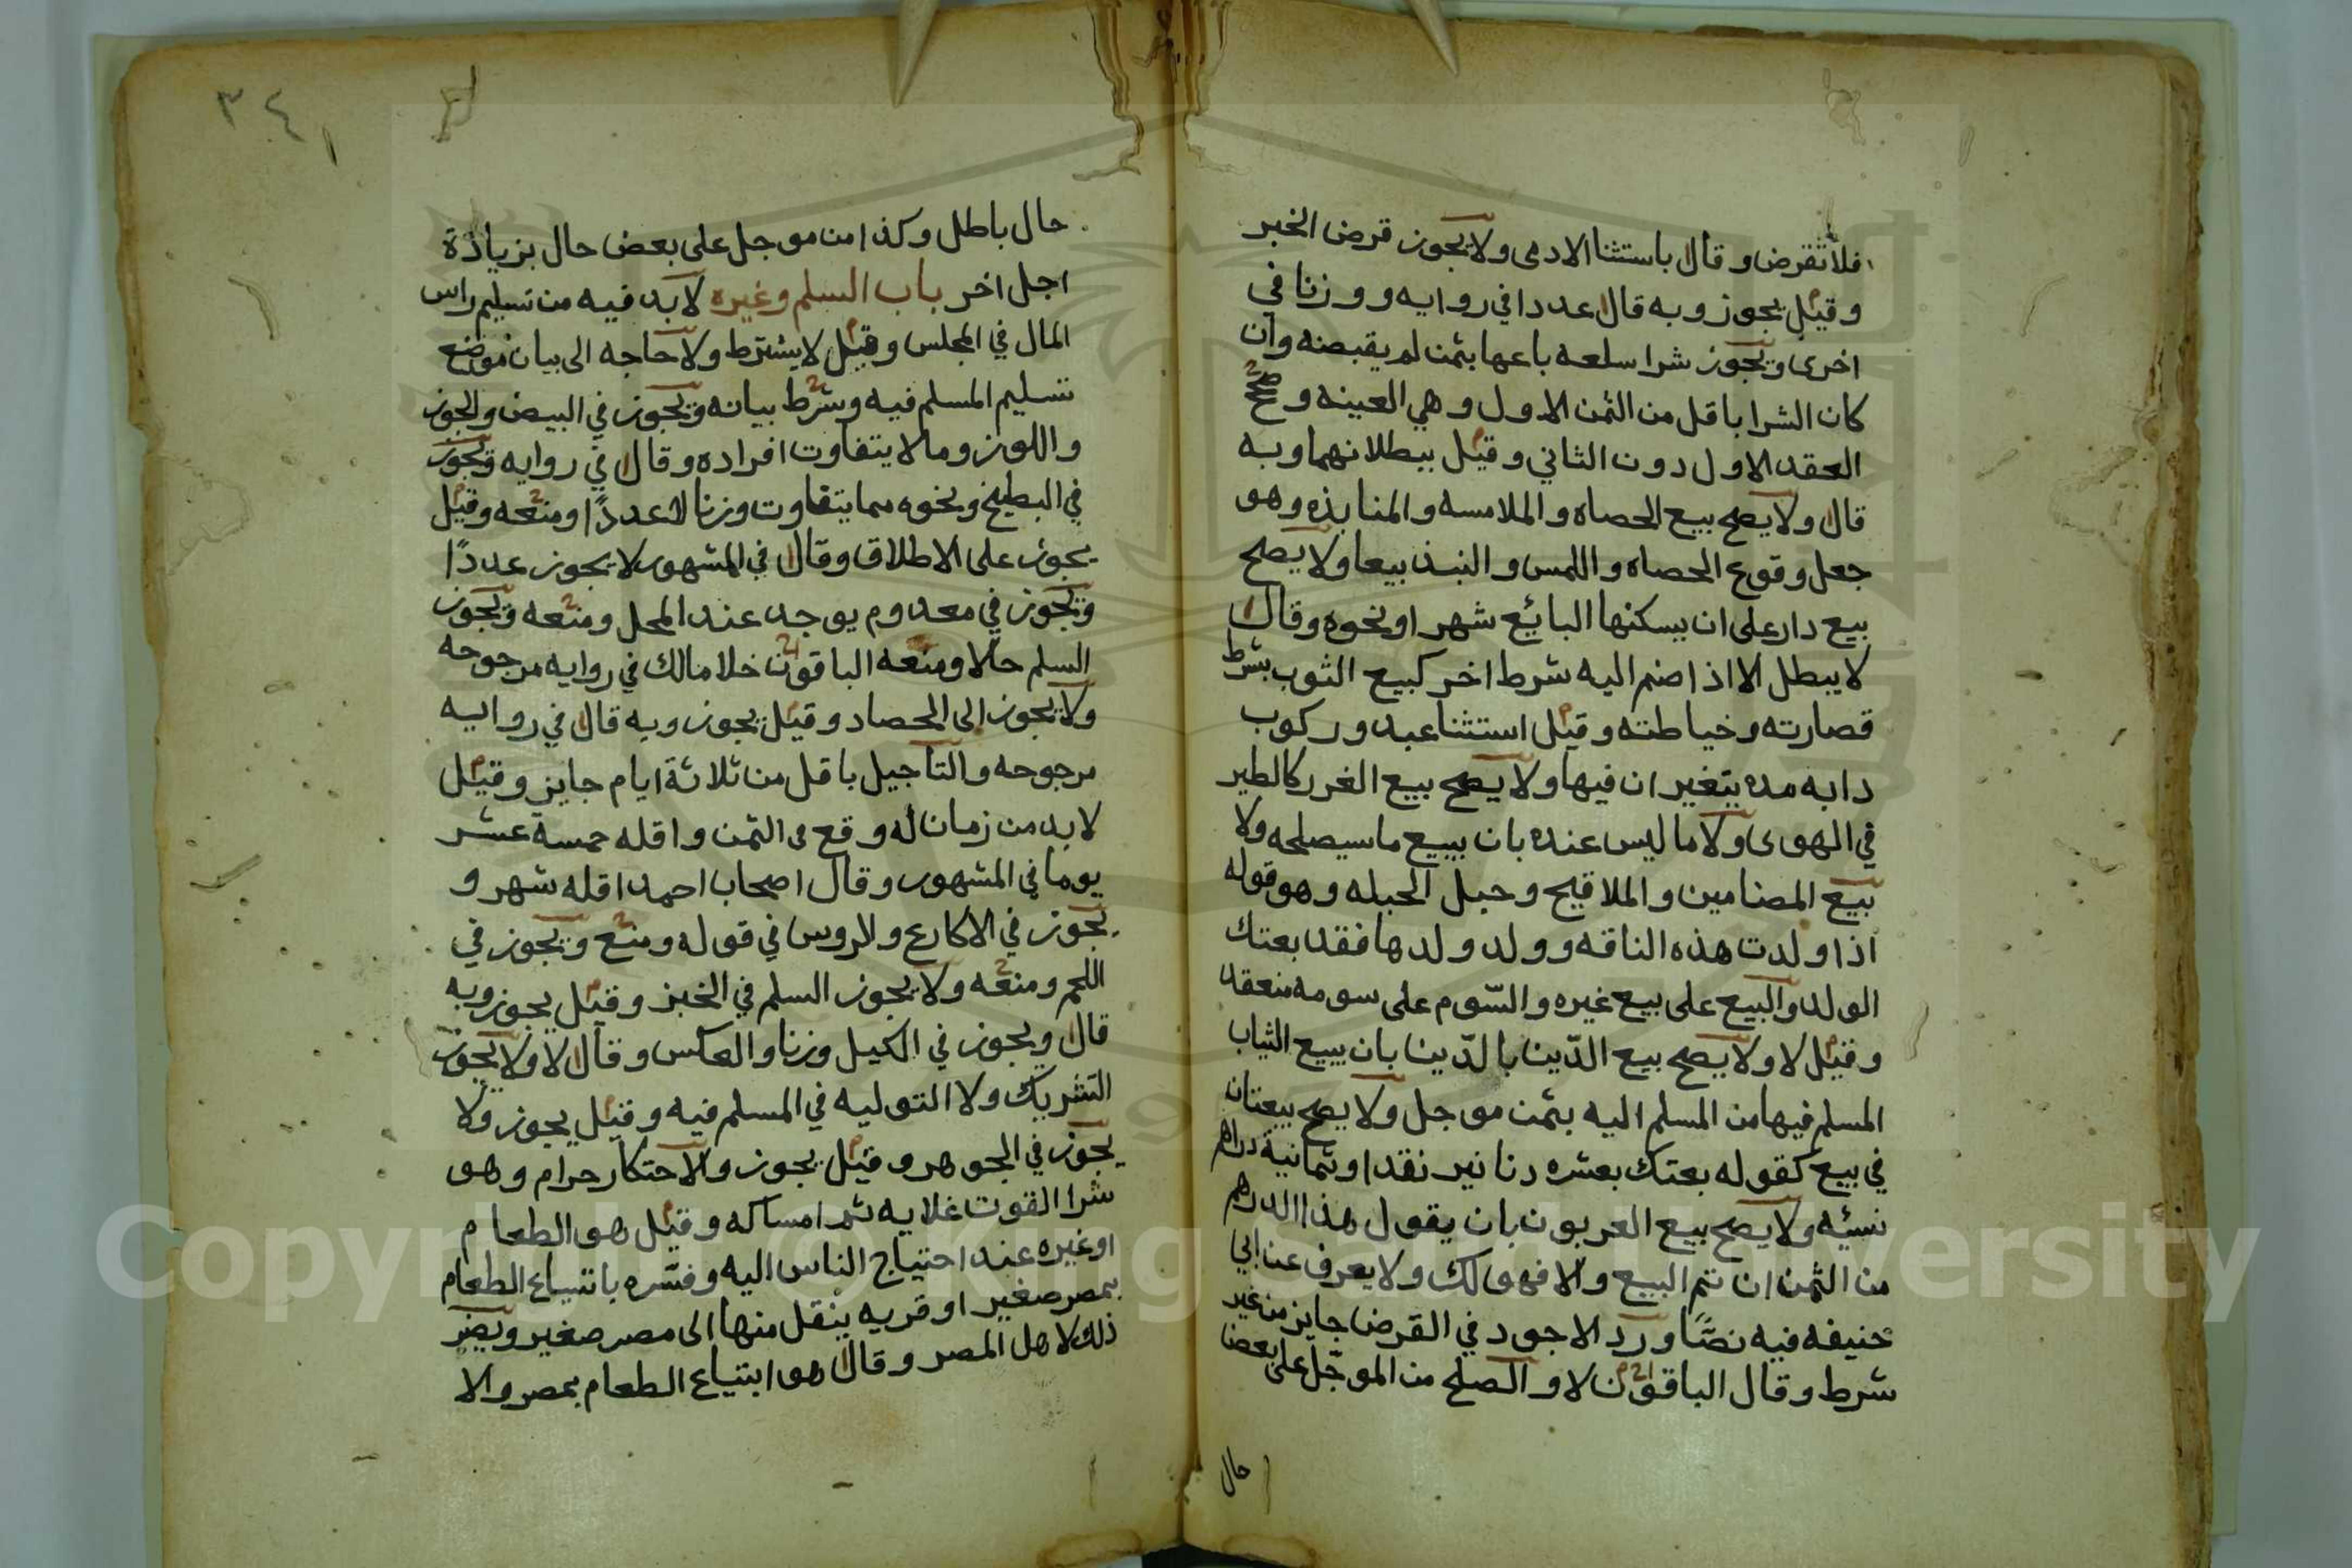 فلا تقرض وقال باستثنا الادمى ولا يجوز قرض الخبز
وقيل يجوز وبه قال عددا في روايه ووزنا في
اخرى ويجوز شرا سلعه باعها بثمن لم يقبضه وان
كان الشرا باقل من الثمن الاول وهي العينه وصحح
العقد الاول دون الثاني وقيل ببطلانهما وبه
قال ولا يصح بيع الحصاه والملامسه والمنابذه وهو
جعل وقوع الحصاه واللمس والنبذ بيعا ولا يصح
بيع دار على ان يسكنها البائع شهر او نحوه وقال
لا يبطل الا اذا ضم اليه شرط اخر كبيع الثوب بشرط
قصارته وخياطته وقيل استثنا عبد وركوب
دابه مده يتغيران فيها ولا يصح بيع الغرر كالطير
في الهوى ولا ما ليس عنده بان يبيع ماسيصلحه ولا
بيع المضامين والملاقيح وحبل الحبله وهو قوله
اذا ولدت هذه الناقه وولد ولدها فقد بعتك
الولد والبيع على بيع غيره والسّوم على سومه منعقد
وقيل لا ولا يصح بيع الدّين بالدّين بان يبيع الثياب
المسلم فيها من المسلم اليه بثمن موجل ولا يصح بيعتان
في بيع كقوله بعتك بعشره دنانير نقدا وثمانية دراهم
نسيئه ولا يصح بيع العربون بان يقول هذا الدرهم
من الثمن ان تم البيع والا فهو لك ولا يعرف عن ابي
حنيفه فيه نصًّا ورد الاجود في القرض جايز من غير
شرط وقال الباقون لا والصلح من الموجّل على بعض
حال
٣٤١
حال باطل وكذا من موجل على بعض حال بزيادة
اجل اخر باب السلم وغيره لا بد فيه من تسليم راس
المال في المجلس وقيل لا يشترط ولا حاجه الى بيان موضع
تسليم المسلم فيه وشرط بيانه ويجوز في البيض والجوز
واللوز وما لا يتفاوت افراده وقال في روايه ويجوز
في البطيخ ونحوه مما يتفاوت وزنا لا عددًا ومنعه وقيل
يجوز على الاطلاق وقال في المشهور لا يجوز عددًا
ويجوز في معدوم يوجد عند المحل ومنعه ويجوز
السلم حالا ومنعه الباقون خلا مالك في روايه مرجوحه
ولا يجوز الى الحصاد وقيل يجوز وبه قال في روايه
مرجوحه والتاجيل باقل من ثلاثة ايام جايز وقيل
لا بد من زمان له وقع في الثمن واقله خمسة عشر
يوما في المشهور وقال اصحاب احمد اقله شهر و
يجوز في الاكارع والروس في قوله ومنع ويجوز في
اللحم ومنعه ولا يجوز السلم في الخبز وقيل يجوز وبه
قال ويجوز في الكيل وزنا والعكس وقال لا ولا يجوز
التشريك ولا التوليه في المسلم فيه وقيل يجوز ولا
يجوز في الجوهر وقيل يجوز والاحتكار حرام وهو
شرا القوت غلايه ثم امساكه وقيل هو الطعام
او غيره عند احتياج الناس اليه وفسّره بابتياع الطعام
بمصر صغير او قريه ينقل منها الى مصر صغير ويضر
ذلك لاهل المصر وقال هو ابتياع الطعام بمصر والا
Copyright © King Saud University